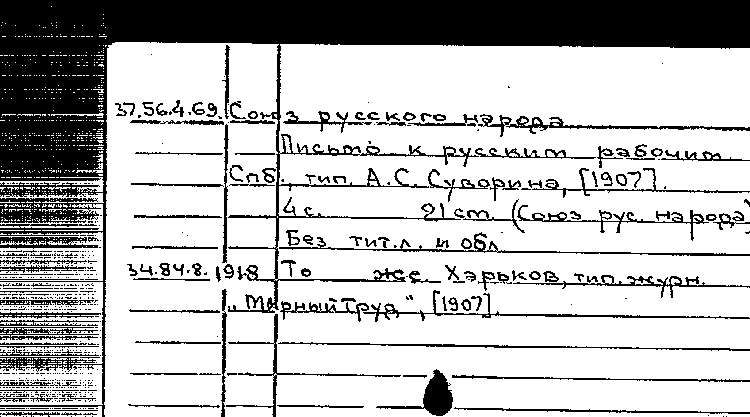 37.56.4.69. Союз русского народа
Письмо к русским рабочим
Спб., тип. А.С. Суворина, [1907].
4 с. 21 см. (Союз рус. народа)
Без тит.л. и обл.
34.84.8.1918 То же. Харьков, тип. журн.
„Мирный Труд", [1907].